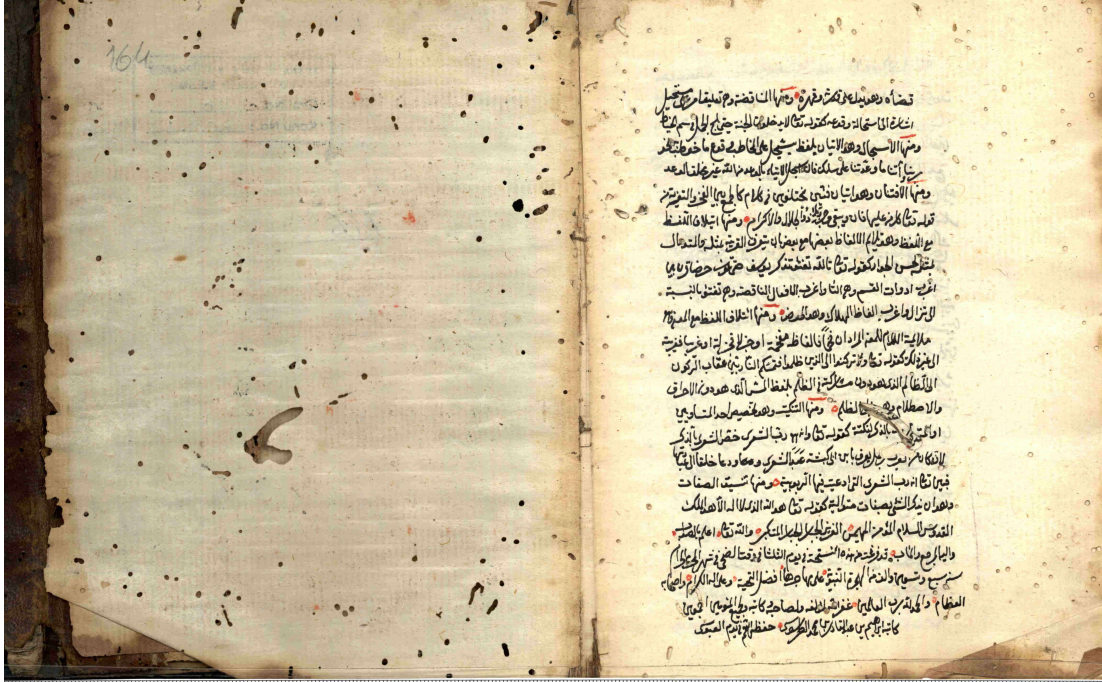 قضاه وهو يدل على قدرته وقهره ومنها المناقضة وهي تعليق امر على مستحيل
اشارة الى استحالة وقوعه كقوله تعالى لا يدخلون الجنة حتى يلج الجمل في سم الخياط
ومنها الاسجال وهو الاتيان بلفظ يسجل على المخاطب وقوع ما خوطب به نحو
ربنا وآتنا ما وعدتنا على رسلك فان الاتيان بالوعد من الله غير مخلف الوعد
ومنها الافتنان وهو اتيان فنين مختلفين في كلام كالجمع بين الفخر والتعزية في
قوله تعالى كل من عليها فان ويبقى وجه ربك ذو الجلال والاكرام ومنها ايتلاف اللفظ
مع اللفظ وهو تلايم الالفاظ بعضها مع بعض بان تقرن الغريب بمثله والمتداول
بمثله لحسن الجوار كقوله تعالى تالله تفتؤ تذكر يوسف حتى تكون حرضا
اغرب ادوات القسم وهي التا واغرب الافعال الناقصة وهي تفتؤ بالنسبة
لا تزال واغرب الفاظ الهلاك وهو الحرض ومنها ائتلاف اللفظ مع المعنى وهو
ملايمة الكلام للمعنى المراد ان فخما فالفاظه مفخمة او جزلا فجزلة او غريبا فغريبة
الى غير ذلك كقوله تعالى ولا تركنوا الى الذين ظلموا فتمسكم النار عقاب الركون
الى الظالم الذي هو دون مشاركته في الظلم بلفظ المس الذي هو دون الاحراق
والاصطلام الظلم ومنها التنكيت وهو تخصيص احد المتساويين
او بالذكر لنكتة كقوله تعالى وانه هو رب الشعرى خص الشعرى بالذكر
لان رجل يعرف بابن ابي كبشة عبد الشعرى ودعا خلقا الى عبادتها
فبين تعالى انه رب الشعرى التي ادعيت فيها الربوبية ومنها تنسيق الصفات
وهو ان يذكر الشئ بصفات متوالية كقوله تعالى هو الله الذي لا اله الا هو الملك
القدوس السلام المؤمن المهيمن العزيز الجبار المتكبر والله تعالى اعلم بالصواب
واليه المرجع والماب قد فرغت من هذه النسخة في يوم الثلثا في وقت الضحى في شهر
سنه سبع وتسعين والف من هجرة النبي على افضل التحية وعلى اله الكرام واصحابه
العظام والحمد لله رب العالمين غفر الله ولصاحبه كاتبه ولجميع المؤمنين اجمعين
كاتبه ابراهيم بن عبد القادر بن محمد حفظه
164